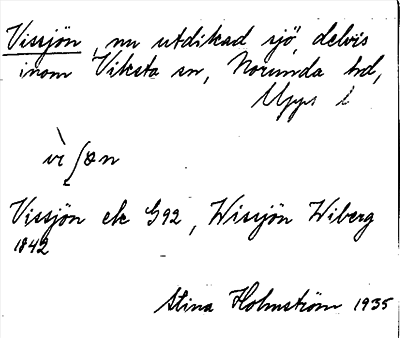 Vissjön, nu utdikad sjö, delvis
inom Viksta sn, Norunda hd,
Upps l
Vissjön ek G92, Wissjön Wiberg
1842
Stina Holmström 1935